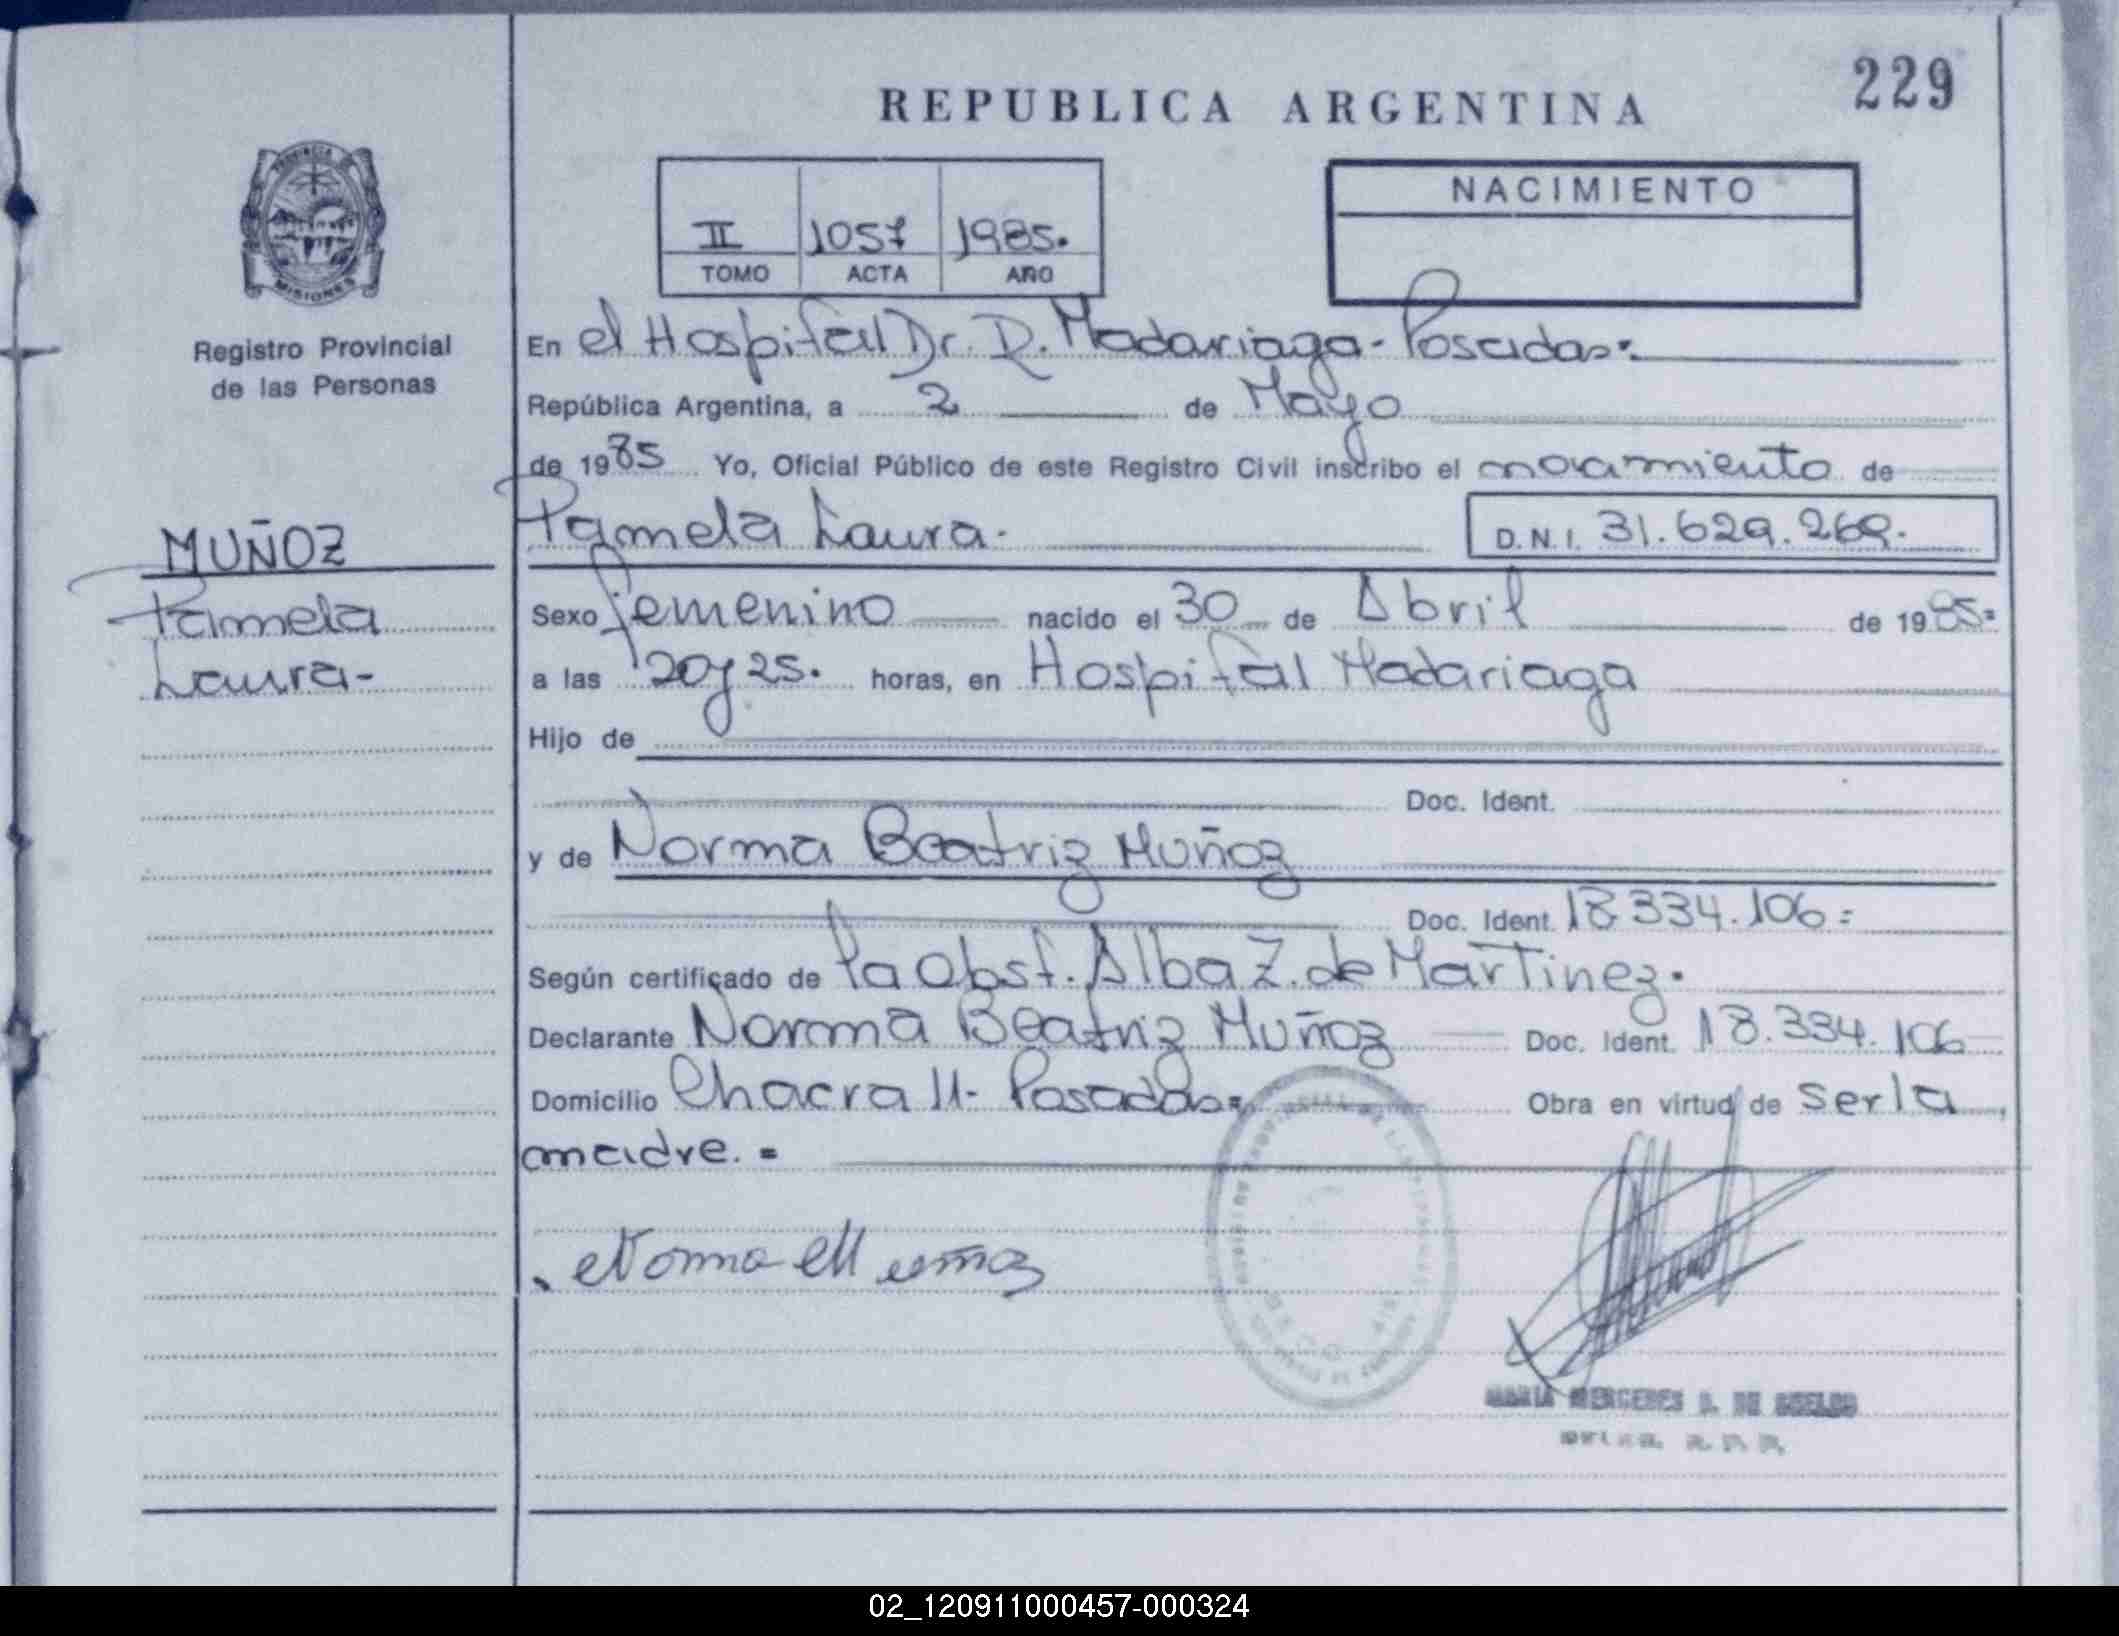 229
REPUBLICA ARGENTINA
PROVINCIA DE
MISIONES
Registro Provincial
de las Personas
II 1057 1985.
TOMO ACTA AÑO
NACIMIENTO
En el Hospital Dr. R. Madariaga - Posadas.
República Argentina, a 2 de Mayo
de 1985 Yo, Oficial Público de este Registro Civil inscribo el nacimiento de
MUÑOZ
Pamela
Laura-
Pamela Laura.
D.N.I. 31.629.269.
Sexo femenino nacido el 30 de Abril de 1985=
a las 20 y 25. horas, en Hospital Madariaga
Hijo de
Doc. Ident.
y de Norma Beatriz Muñoz
Doc. Ident. 18334.106=
Según certificado de la Obst. Alba Z. de Martinez.
Declarante Norma Beatriz Muñoz Doc. Ident. 18.334.106
Domicilio Chacra 11- Posadas= Obra en virtud de Ser la
madre. =
Norma Muñoz
MARIA MERCEDES
02_120911000457-000324